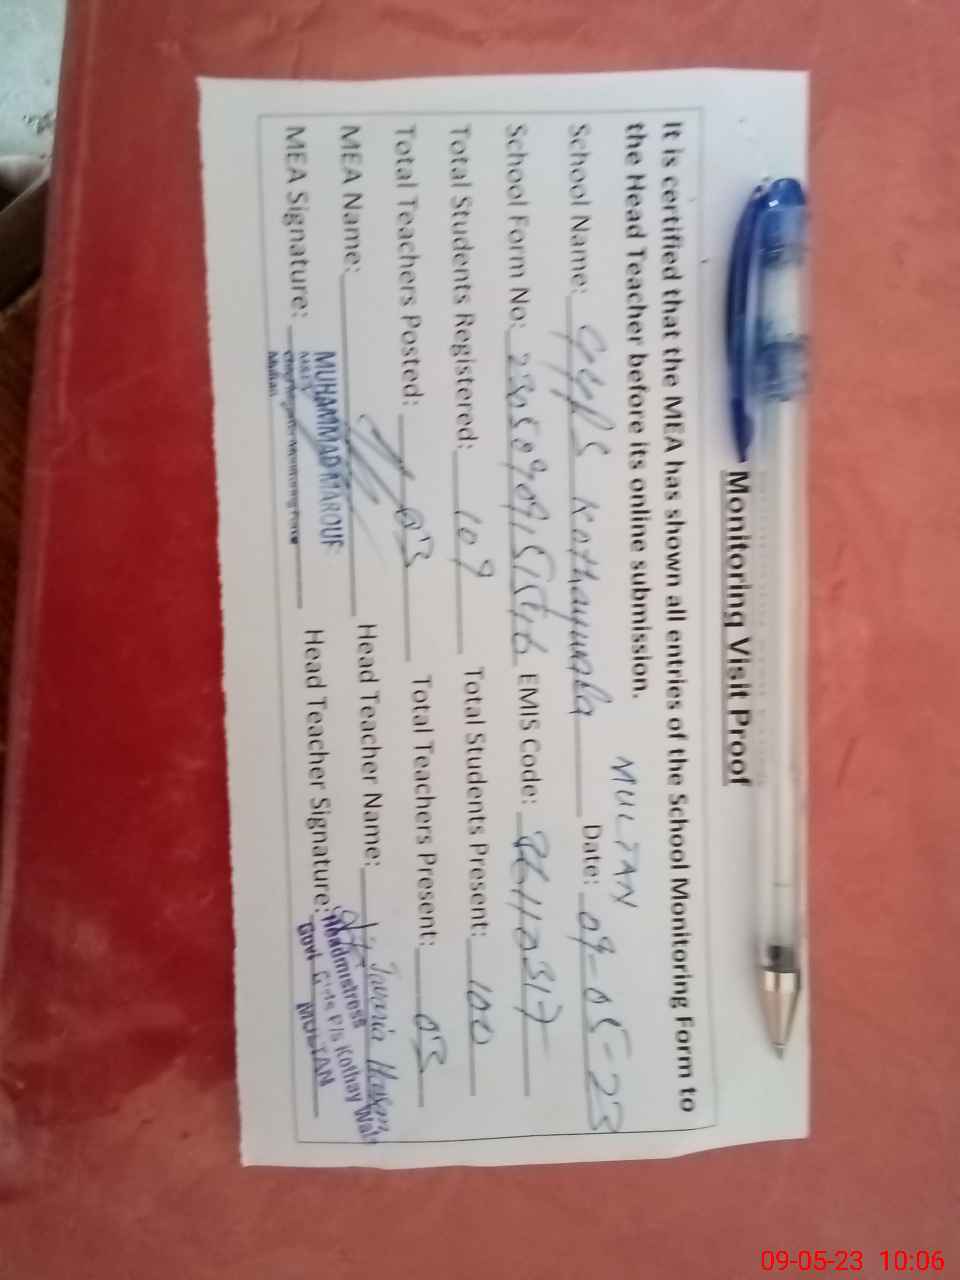 Monitoring Visit Proof
It is certified that the MEA has shown all entries of the School Monitoring Form to
the Head Teacher before its online submission.
MULTAN
School Name: GGPS Kothaywala Date: 09-05-23
School Form No: EMIS Code: 36110317
Total Students Registered: 109 Total Students Present: 100
Total Teachers Posted: 03 Total Teachers Present: 03
MEA Name: Head Teacher Name: Javaria Hasan
MUHAMMAD MAROUF
MEA Signature: Head Teacher Signature:
Multan
Headmistress
Govt Girls P/s Kothay Wala
MULTAN
09-05-23 10:06